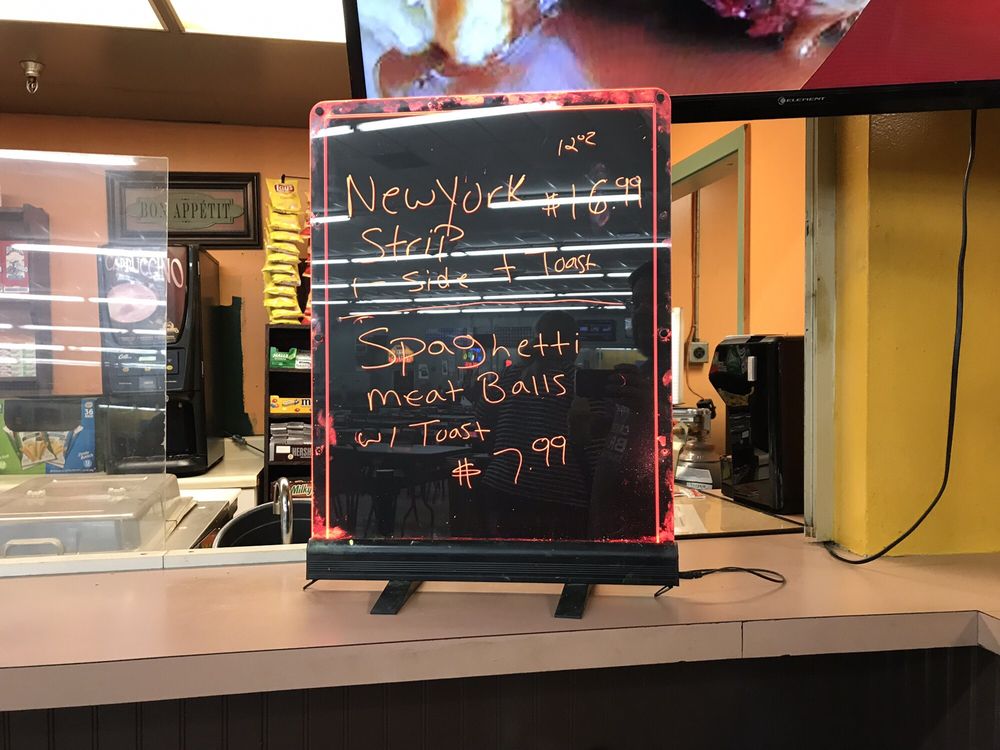 ELEMENT
12oz
New York $16.99
Strip
1 - Side + Toast
Spaghetti
meat Balls
w/ Toast
$7.99
BON APPÉTIT
Lay's
CAPPUCCINO
36
HERSH
Milky